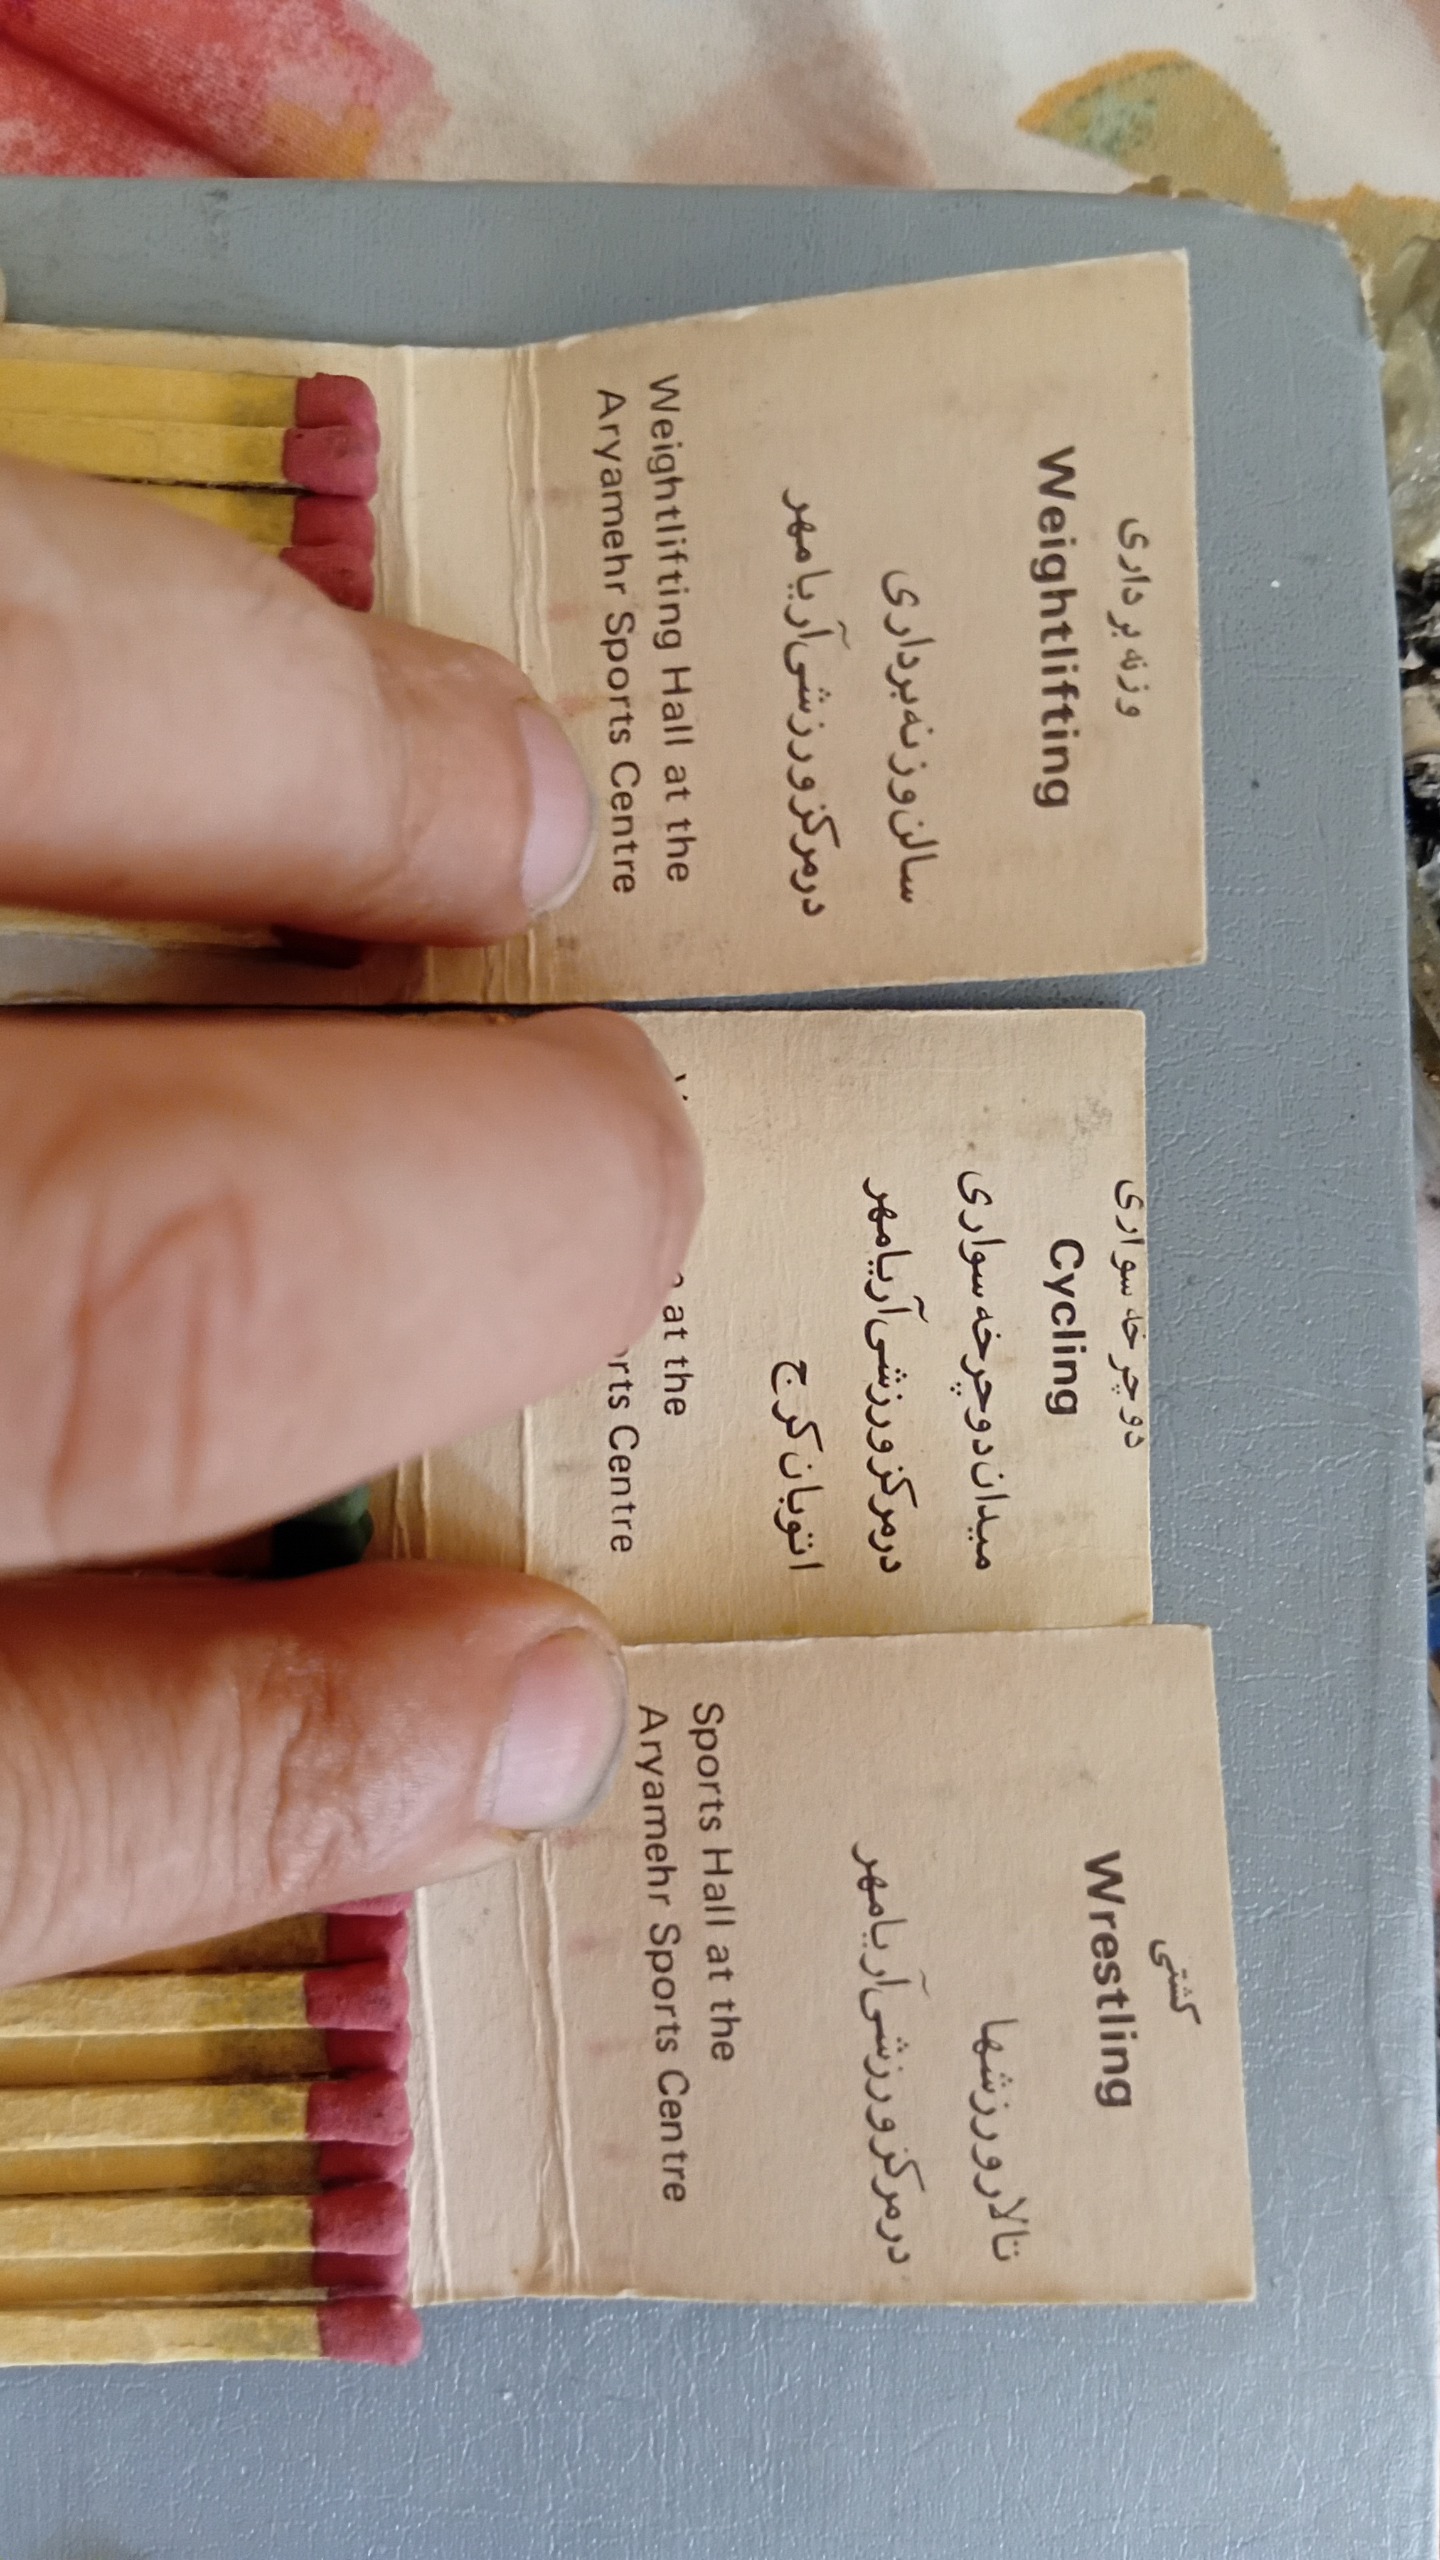 وزنه برداری
Weightlifting
سالن وزنه برداری
در مرکز ورزشی آریامهر
Weightlifting Hall at the
Aryamehr Sports Centre
دوچرخه سواری
Cycling
میدان دوچرخه سواری
در مرکز ورزشی آریامهر
اتوبان کرج
at the
Centre
کشتی
Wrestling
تالار ورزشها
در مرکز ورزشی آریامهر
Sports Hall at the
Aryamehr Sports Centre